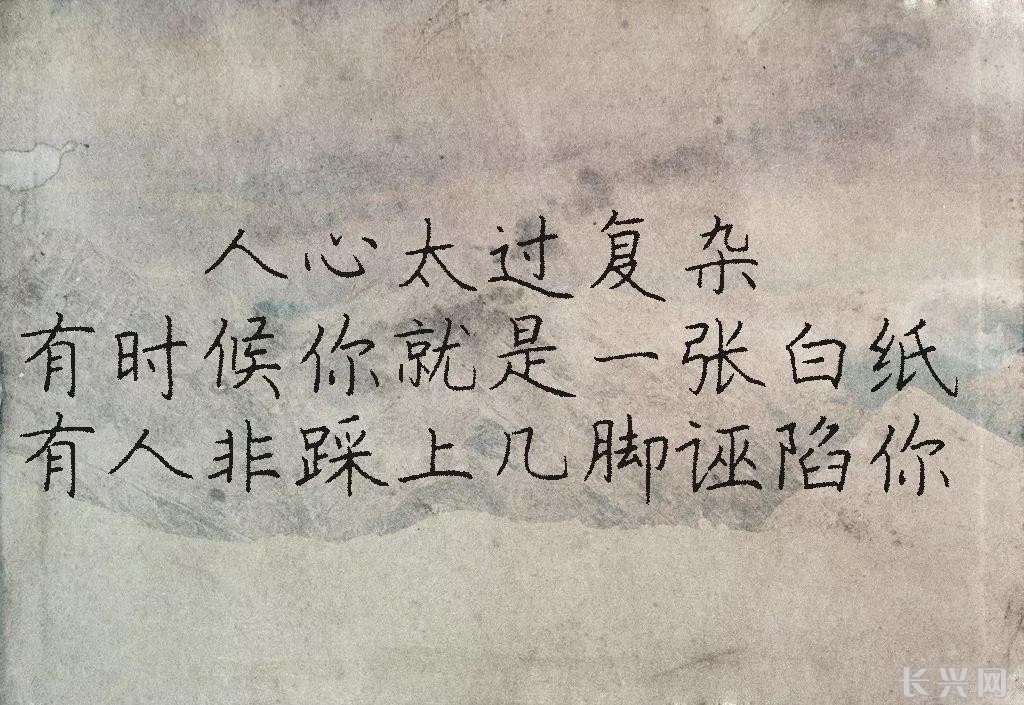 人心太过复杂
有时候你就是一张白纸
有人非踩上几脚诬陷你
长兴网